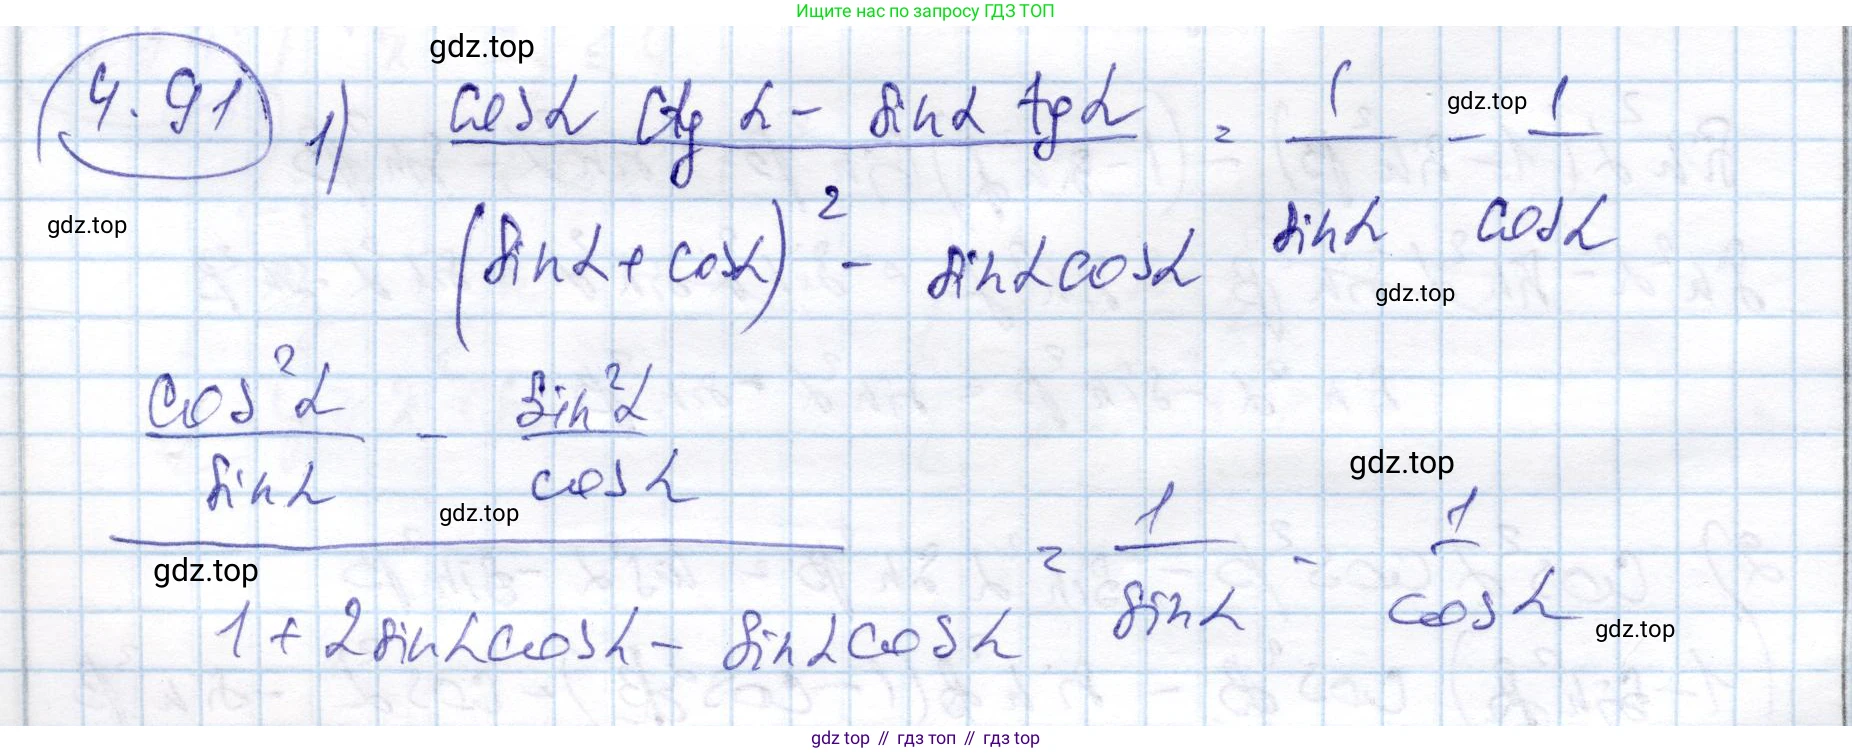 Ищите нас по запросу ГДЗ ТОП
gdz.top
4.91 1) (cosα ctgα - sinα tgα) / ((sinα + cosα)² - sinα cosα) = 1/sinα - 1/cosα
gdz.top
gdz.top
gdz.top
(cos²α/sinα - sin²α/cosα) / (1 + 2sinαcosα - sinαcosα) = 1/sinα - 1/cosα
gdz.top
gdz.top
gdz.top
gdz.top
gdz.top // гдз топ // gdz.top